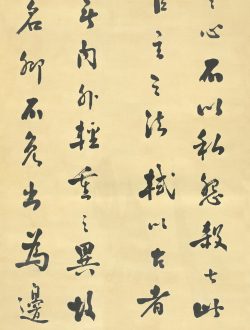 之心不以私怨殺士此
主之法栻以古者
內外輕重之異故
名卿不免出為邊